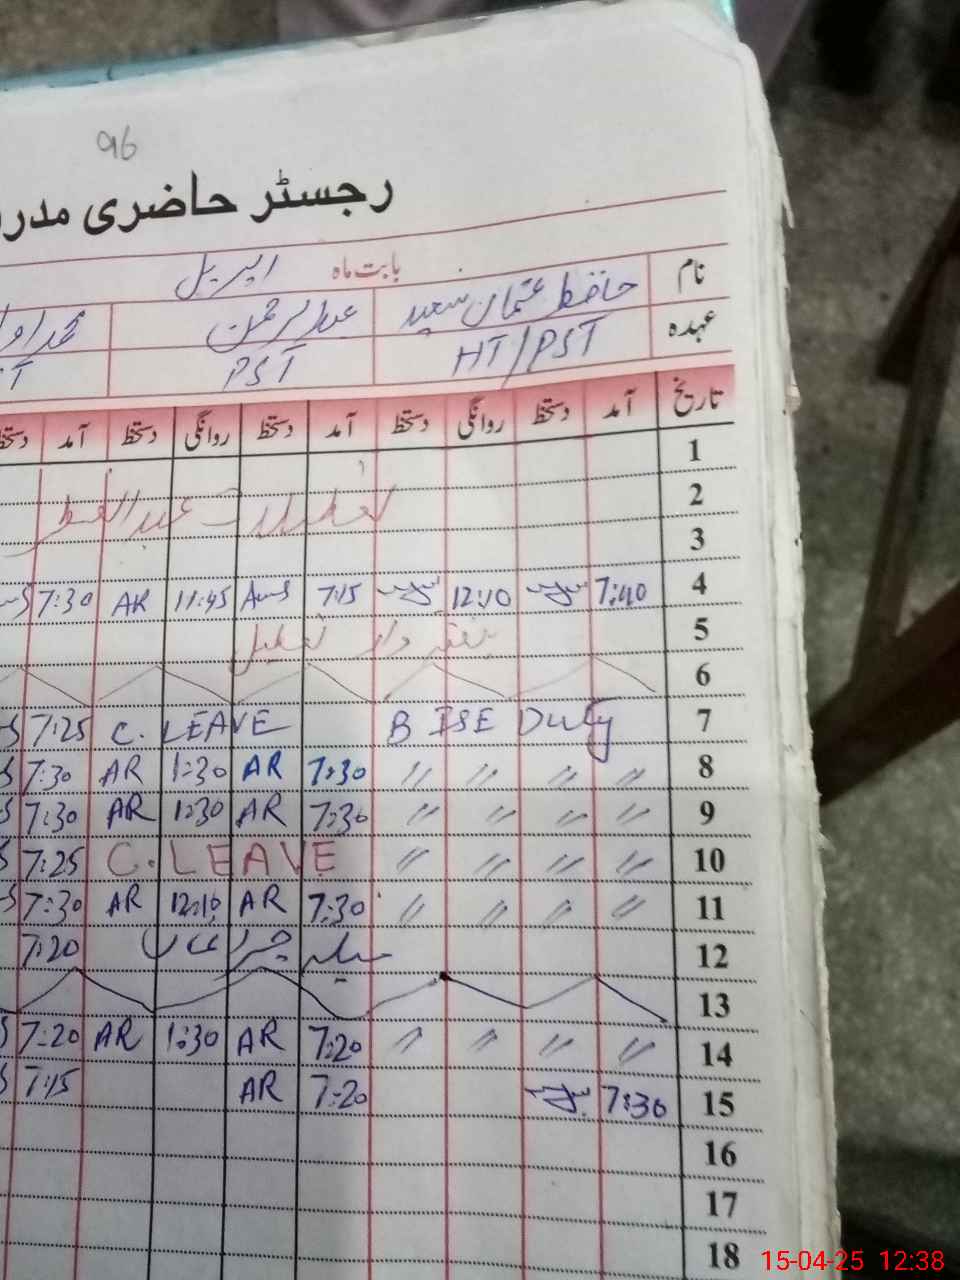 96
رجسٹر حاضری مدر
بابت ماہ اپریل
نام حافظ عثمان سعید عبدالرحمن
عہدہ HT/PST PST T
تاریخ آمد دستخط روانگی دستخط آمد دستخط روانگی دستخط آمد دستخط
1
2 تعطیلات عیدالفطر
3
4 7:40 12:10 7:15 11:45 AR 7:30
5 ہفتہ وار تعطیل
6
7 BISE Duty C. LEAVE 7:25
8 〃 〃 〃 〃 7:30 AR 1:30 AR 7:30
9 〃 〃 〃 〃 7:30 AR 1:30 AR 7:30
10 〃 〃 〃 〃 C. LEAVE 7:25
11 〃 〃 〃 〃 7:30 AR 12:10 AR 7:30
12 میلہ چراغاں 7:20
13
14 〃 〃 〃 〃 7:20 AR 1:30 AR 7:20
15 7:30 7:20 AR 7:15
16
17
18
15-04-25 12:38